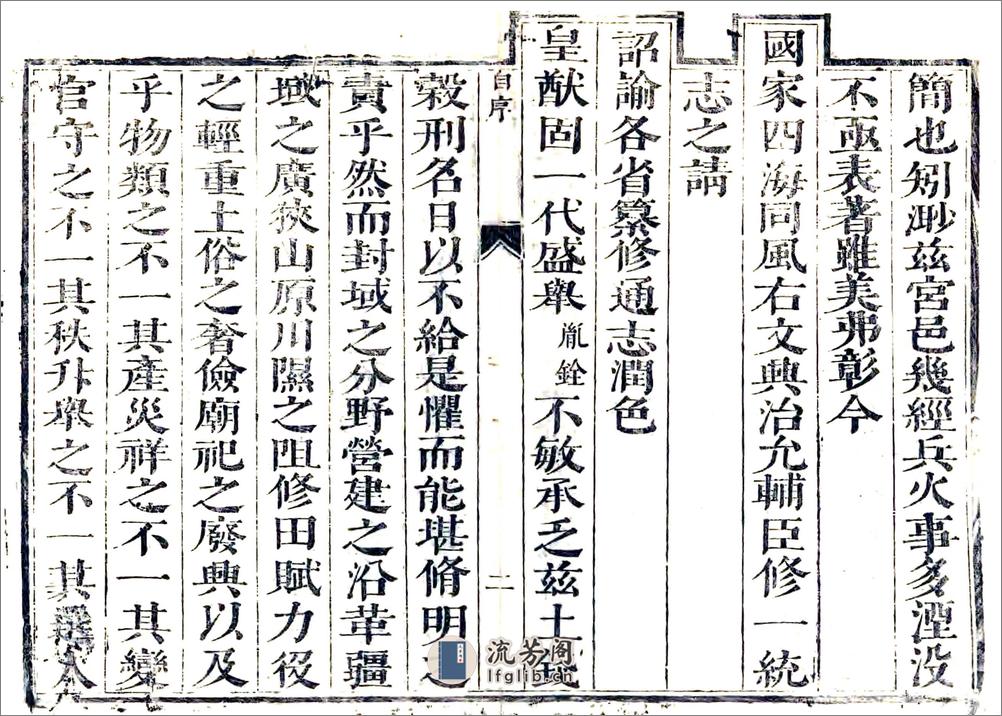 簡也矧渺兹宮邑幾經兵火事多湮没
不亟表著雖美弗彰今
國家四海同風右文興治允輔臣修一統
志之請
詔諭各省纂修通志潤色
皇猷固一代盛舉胤銓不敏承乏兹土錢
自序
二
穀刑名日以不給是懼而能堪脩明之
責乎然而封域之分野營建之沿革疆
域之廣狹山原川隰之阻修田賦力役
之輕重土俗之奢儉廟祀之廢興以及
乎物類之不一其產災祥之不一其變
官守之不一其秩升舉之不一其選人
流芳阁
lfglib.cn